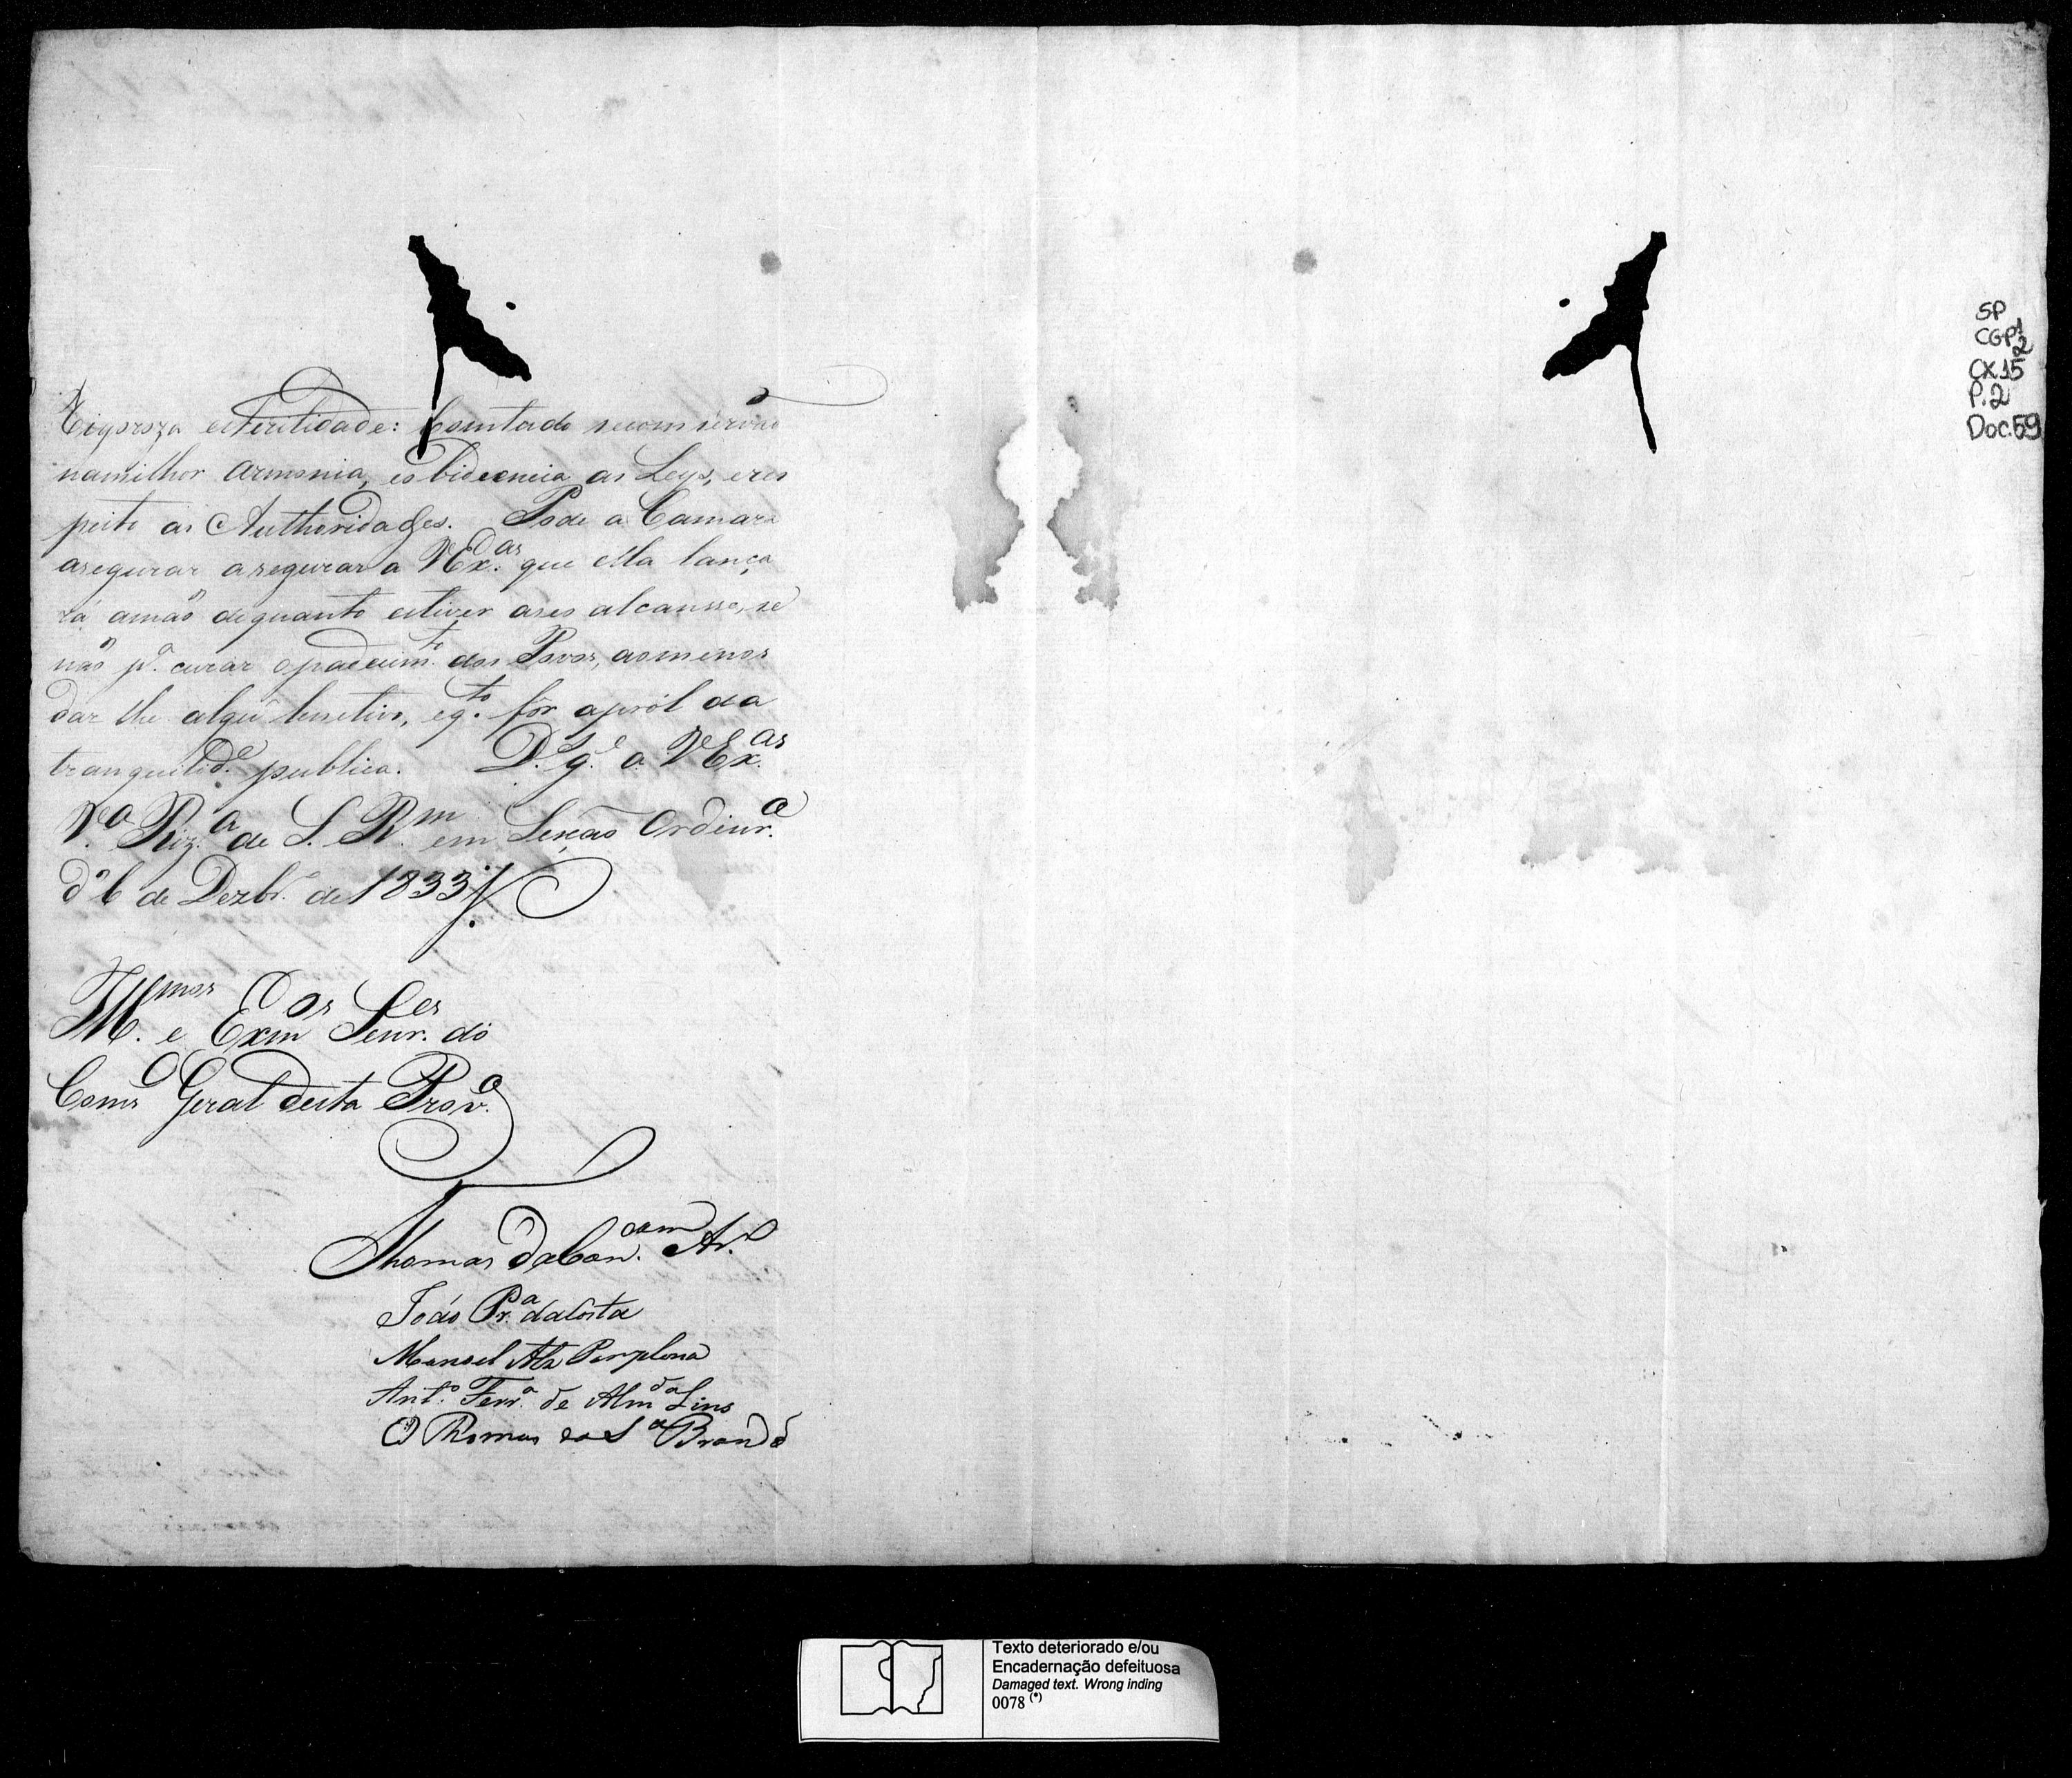 rigoroza esterilidade: Comtudo se comservão
namilhor armonia, eobidiencia as Leys, eres
peito as Authoridades. Pode a Camara
asegurar asegurar a VEx.as que ella lança
rá amaõ dequanto estiver aseo alcansse, se
naõ p.a curar opadecim.to dos Povos, aomenos
dar lhe algũ lenitivo, eq.to fôr apról da
tranquilid.e publica. D.s g.e a VEx.as
V.a de S. em Seção Ordinr.a
d'6 de Dezbr.o de 1833
Ill.mos e Exm.os Senr.es do
Cons.o Geral desta Prov.a
Thomas daCon.cam Ar.o
João Pr.a daCosta
Manoel Alz Pamplona
Ant.o Ferr.a de Alm.da Lins
Thomas da S.a Brandã
SP
CGP1
2
CX.15
P.2
Doc.59
Texto deteriorado e/ou
Encadernação defeituosa
Damaged text. Wrong inding
0078 (*)